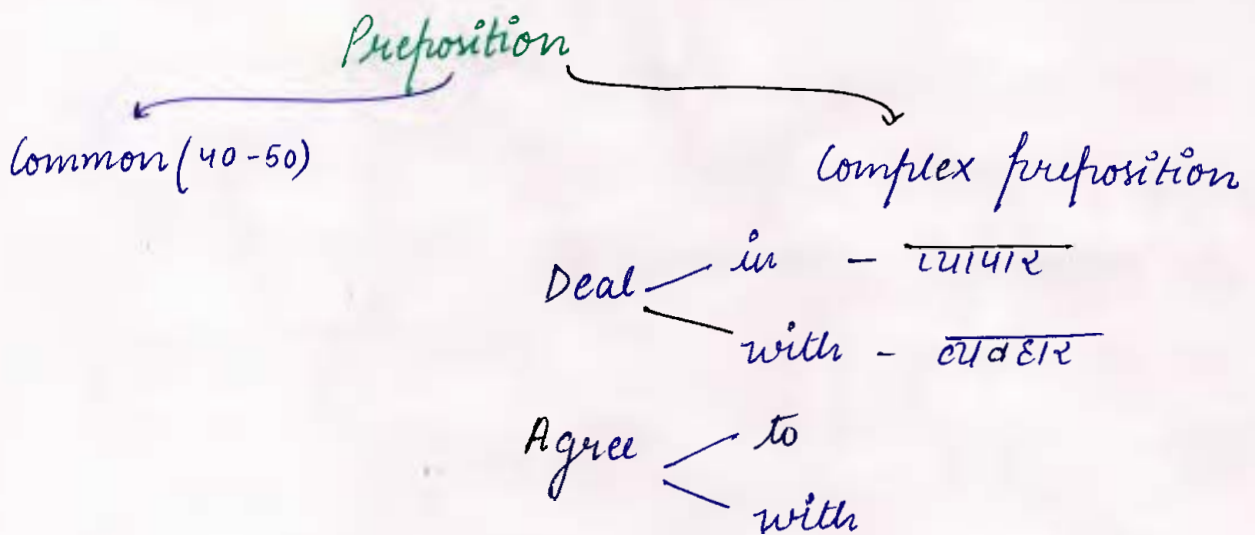 Preposition
Common (40-50)
Complex preposition
Deal in - व्यापार
with - व्यवहार
Agree to
with